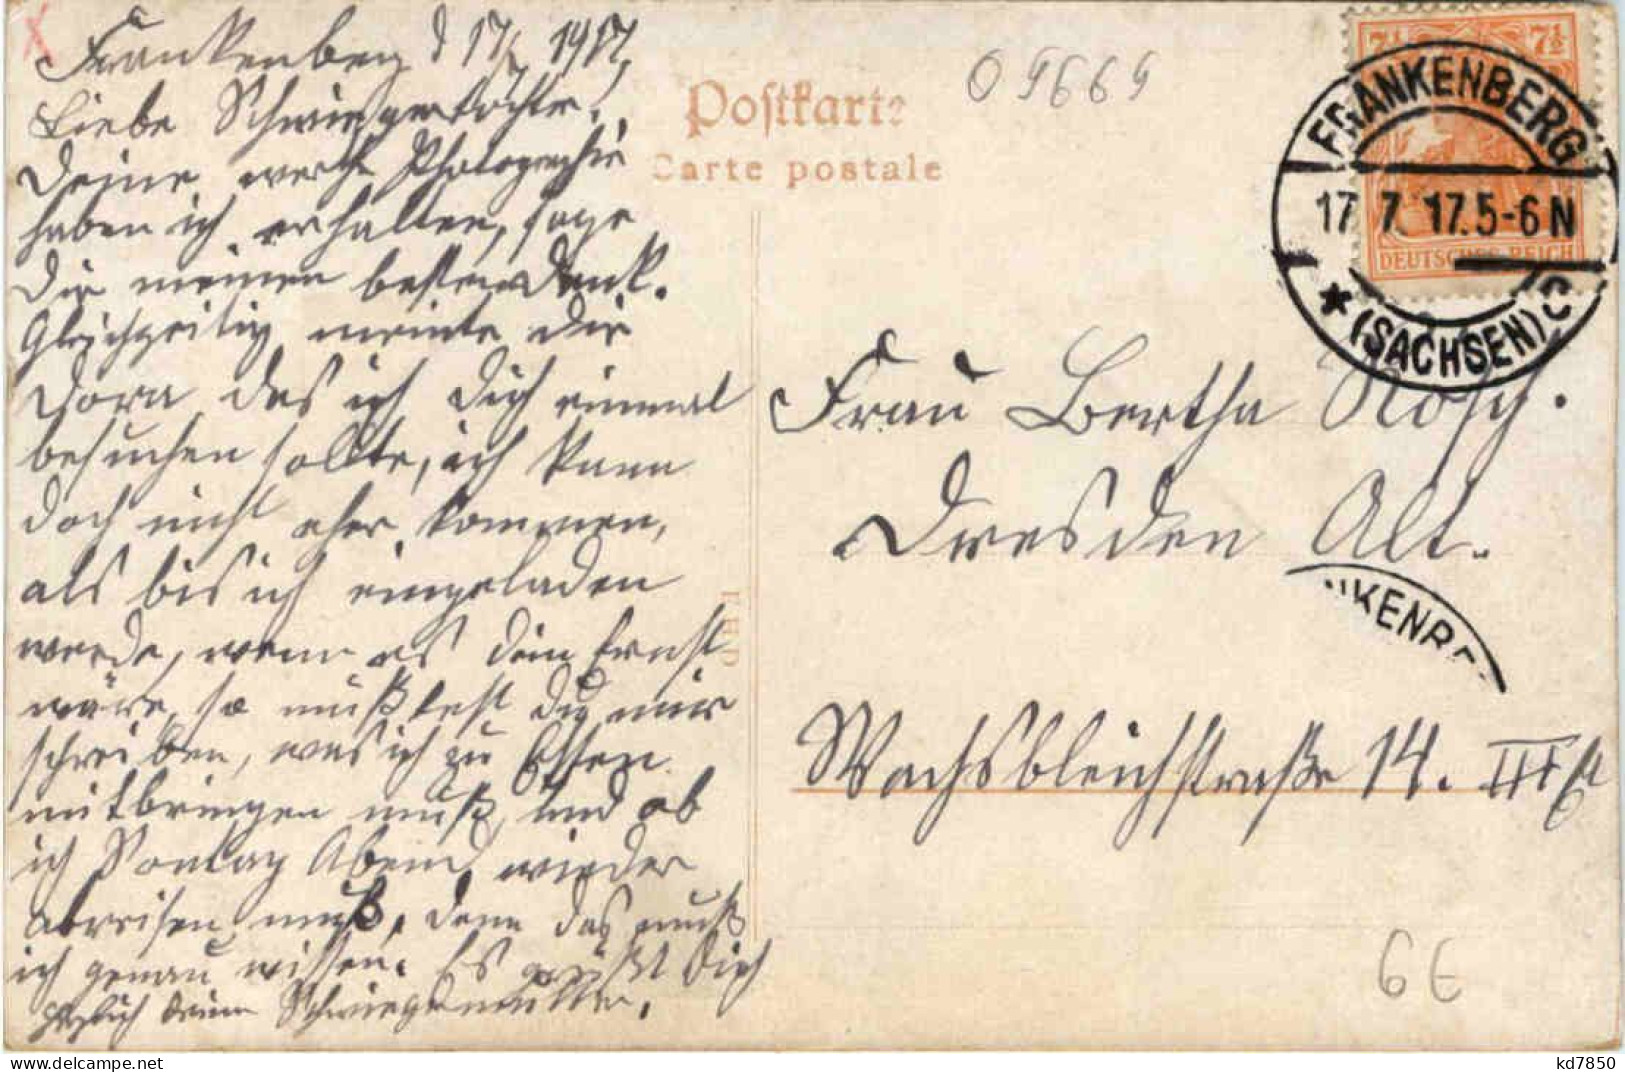 Frankenberg d 17/7 1917,
Liebe Schwiegertochter!
Deine werthe Photographie
haben ich erhalten, sage
Dir meinen besten Dank.
Gleichzeitig meinte die
Dora, das ich Dich einmal
besuchen sollte, ich kann
doch nicht eher kommen,
als bis ich eingeladen
werde, wenn es Dein Ernst
wäre, so mußtest Du mir
schreiben, was ich zu Essen
mitbringen muß, und ob
ich Sontag Abend wieder
abreisen muß, denn das muß
ich genau wissen. Es grüßt Dich
herzlich Deine Schwiegermutter.
Postkarte
Carte postale
09669
7½ 7½
DEUTSCHES REICH
FRANKENBERG
17.7.17.5-6N
*(SACHSEN)C
Frau Bertha
Dresden Alt.
NKENBE
Wachsbleichstraße 14. III
6€
kd7850